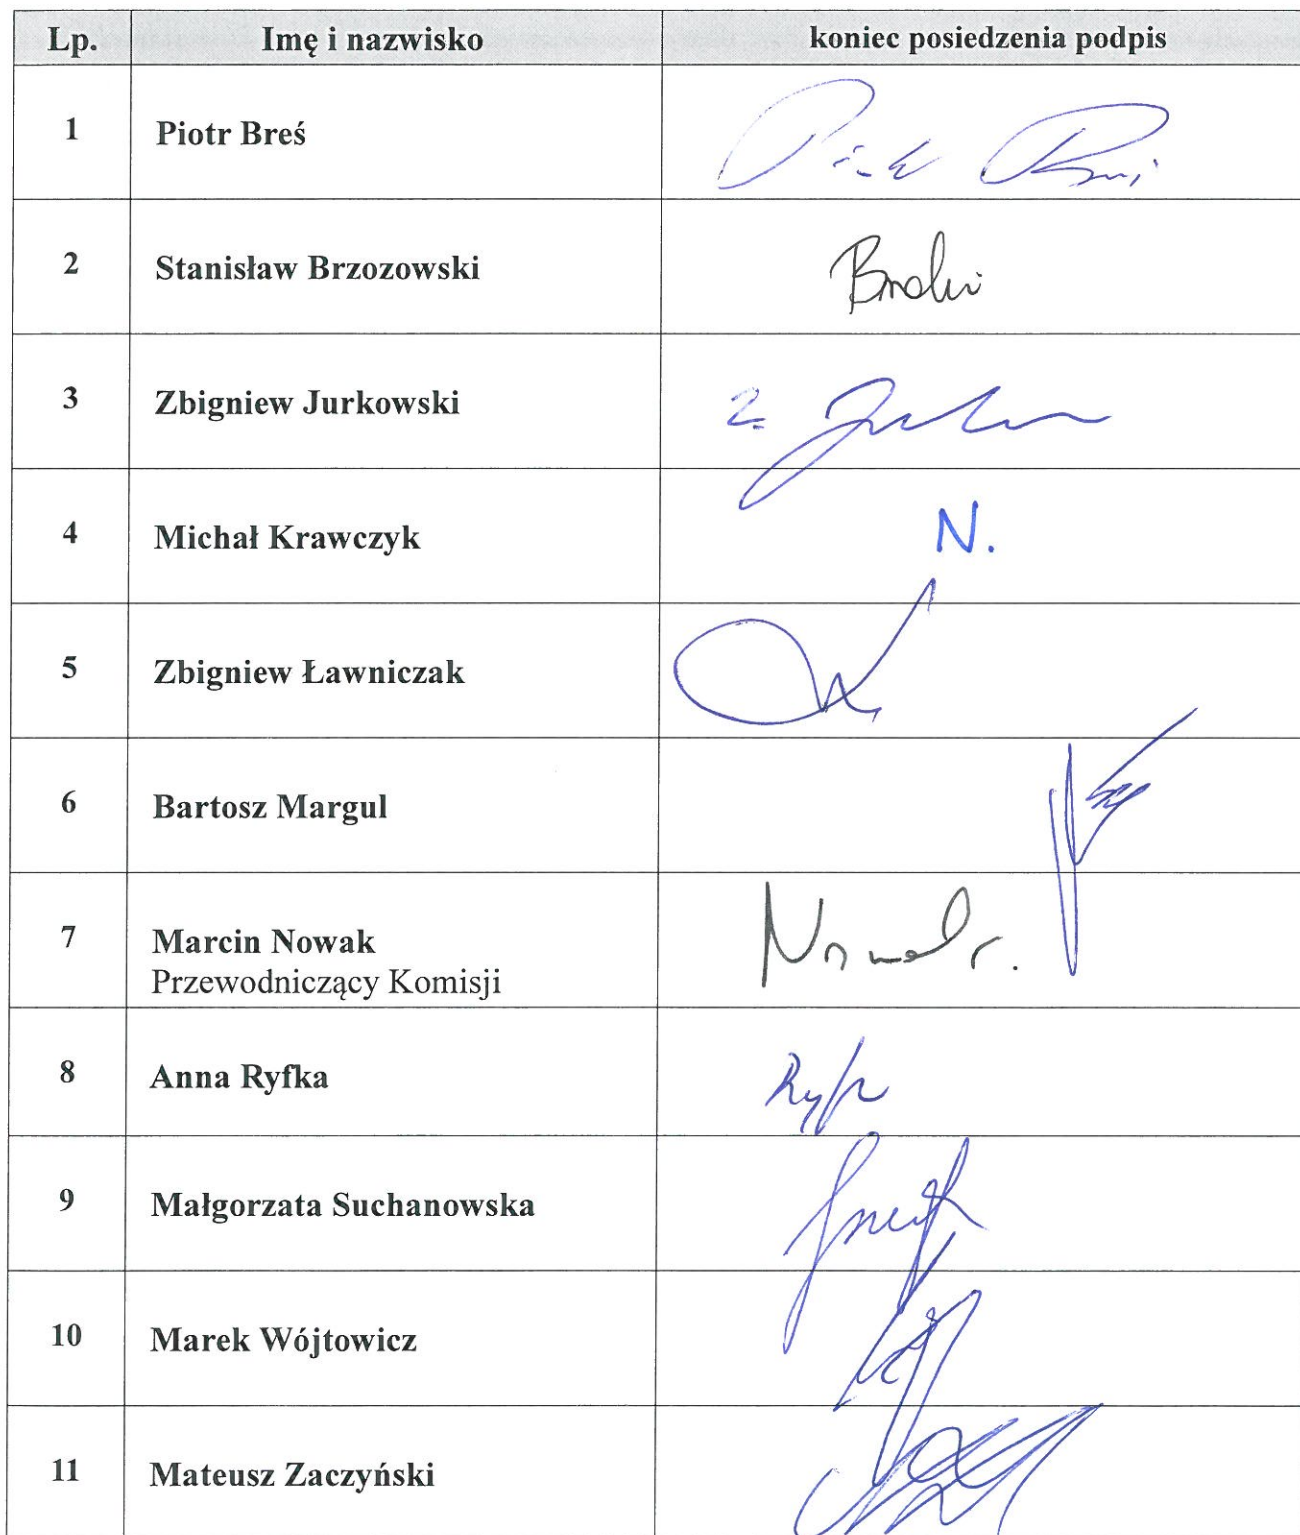 Lp. Imię i nazwisko koniec posiedzenia podpis
1 Piotr Breś
2 Stanisław Brzozowski
3 Zbigniew Jurkowski
4 Michał Krawczyk N.
5 Zbigniew Ławniczak
6 Bartosz Margul
7 Marcin Nowak
Przewodniczący Komisji
8 Anna Ryfka
9 Małgorzata Suchanowska
10 Marek Wójtowicz
11 Mateusz Zaczyński